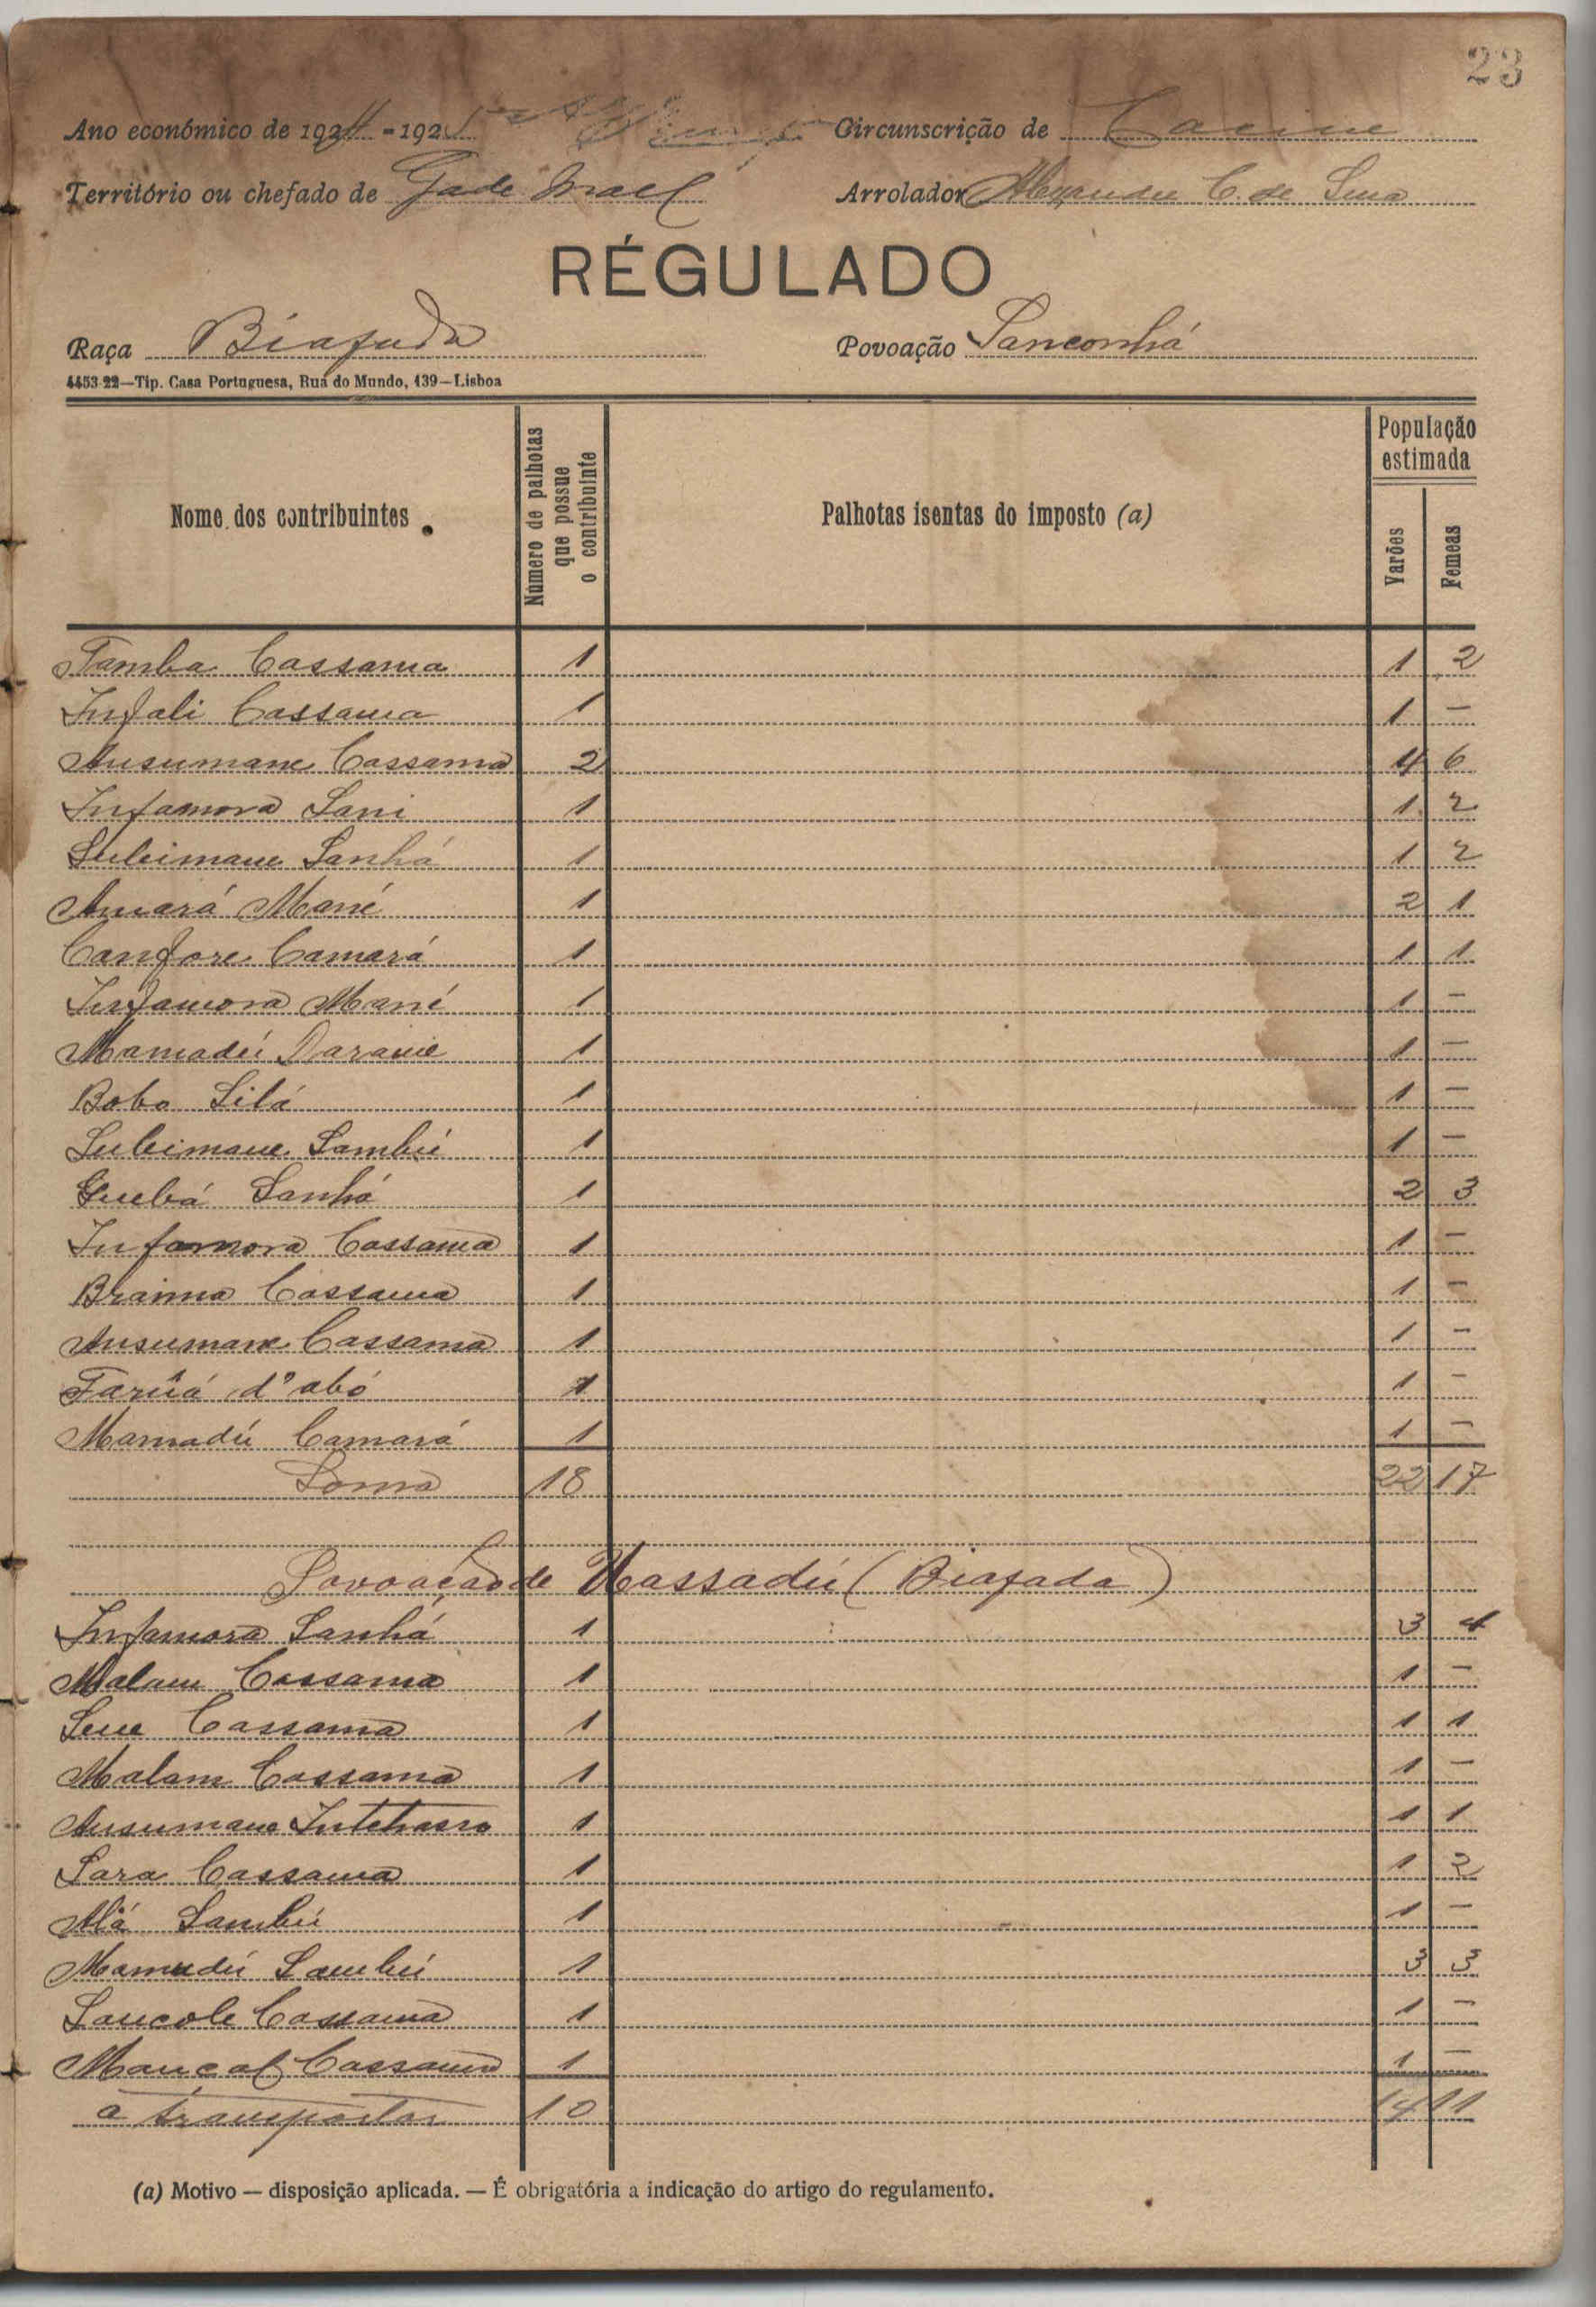 23
Ano económico de 1924-1925 Circunscrição de Cacine
Território ou chefado de Gade Mael Arrolador Alexandre C. de Sena
RÉGULADO
Raça Biafada Povoação Sanconhá
4453-22—Tip. Casa Portuguesa, Rua do Mundo, 139—Lisboa
Nome dos contribuintes Número de palhotas que possue o contribuinte Palhotas isentas do imposto (a) População estimada Varões Femeas
Tamba Cassama 1 1 2
Infali Cassama 1 1 —
Ansumane Cassama 2 4 6
Infamora Sani 1 1 2
Suleimane Sanhá 1 1 2
Amará Mané 1 2 1
Canfore Camará 1 1 1
Infamora Mané 1 1 —
Mamadú Darame 1 1 —
Bobo Silá 1 1 —
Suleimane Sambú 1 1 —
Quebá Sanhá 1 2 3
Infamora Cassama 1 1 —
Braima Cassama 1 1 —
Ansumane Cassama 1 1 —
Farûá d'abó 1 1 —
Mamadú Camará 1 1 —
Soma 18 22 17
Povoação de Massadú (Biafada)
Infamora Sanhá 1 3 4
Malam Cassama 1 1 —
Sene Cassama 1 1 1
Malam Cassama 1 1 —
Ansumane Intchasso 1 1 1
Sara Cassama 1 1 2
Alá Sambú 1 1 —
Mamadú Sambú 1 3 3
Sancole Cassama 1 1 —
Mancal Cassama 1 1 —
a transportar 10 14 11
(a) Motivo — disposição aplicada. — É obrigatória a indicação do artigo do regulamento.